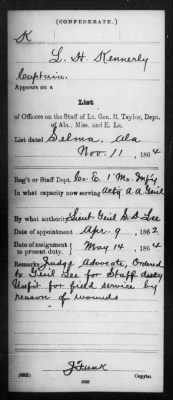 (CONFEDERATE.)
K
L. H. Kennerly
Captain.
Appears on a
List
of Officers on the Staff of Lt. Gen. R. Taylor, Dept.
of Ala., Miss. and E. La.
List dated Selma, Ala
Nov. 11, 1864
Reg't or Staff Dept. Co. E. 1 Mo. Infy
In what capacity now serving Actg A.A. Genl
By what authority Lieut Genl S.D. Lee
Date of appointment Apr. 9, 1862
Date of assignment to present duty, May 14, 1864
Remarks: Judge Advocate, Ordered
to Genl Lee for Staff duty
Unfit for field service by
reason of wounds
J Funk
Copyist.